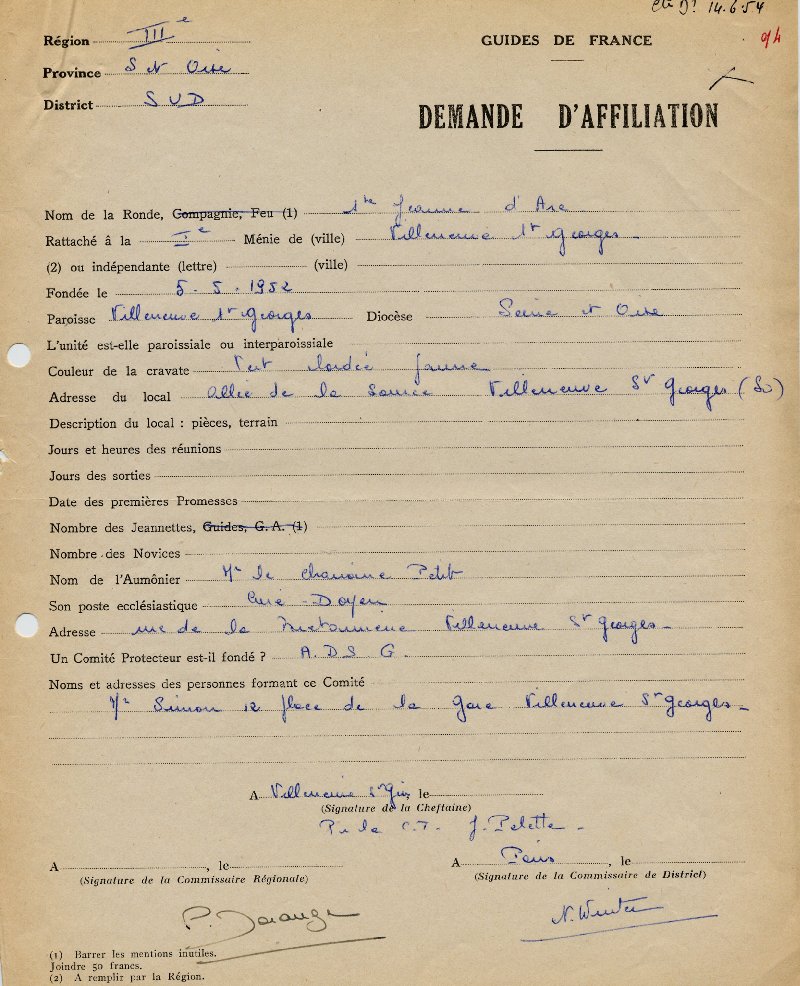 14.6.54
Région IIIe
GUIDES DE FRANCE
94
Province S et Oise
District SUD
DEMANDE D'AFFILIATION
Nom de la Ronde, Compagnie, Feu (1) 1re Jeanne d'Arc
Rattaché â la Ie Ménie de (ville) Villeneuve St Georges
(2) ou indépendante (lettre) (ville)
Fondée le 5.5.1952
Paroisse Villeneuve St Georges Diocèse Seine et Oise
L'unité est-elle paroissiale ou interparoissiale
Couleur de la cravate Vert bordée jaune
Adresse du local allée de la Source Villeneuve St Georges
Description du local : pièces, terrain
Jours et heures des réunions
Jours des sorties
Date des premières Promesses
Nombre des Jeannettes, Guides, G. A. (1)
Nombre des Novices
Nom de l'Aumônier Mr le Chanoine Petit
Son poste ecclésiastique Curé-Doyen
Adresse rue de la Villeneuve St Georges
Un Comité Protecteur est-il fondé ? A.D.S.G.
Noms et adresses des personnes formant ce Comité
Mr Simon 12 place de la Gare Villeneuve St Georges
A Villeneuve St Gges, le
(Signature de la Cheftaine)
P. la C.T. J. Pelette
A , le
A Paris , le
(Signature de la Commissaire Régionale)
(Signature de la Commissaire de District)
N. Winter
(1) Barrer les mentions inutiles.
Joindre 50 francs.
(2) A remplir par la Région.